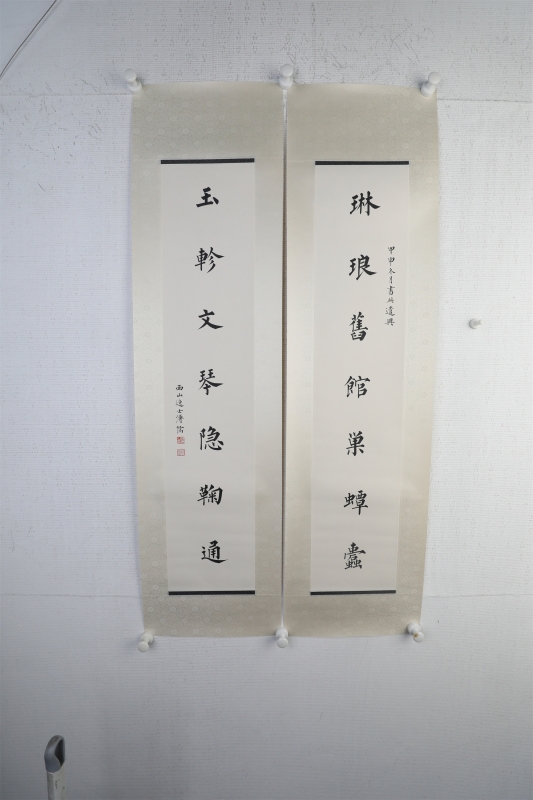 琳琅舊館巢蟫蠹
甲申月書遣興
玉軫文琴隐鞠通
西山逸士溥儒